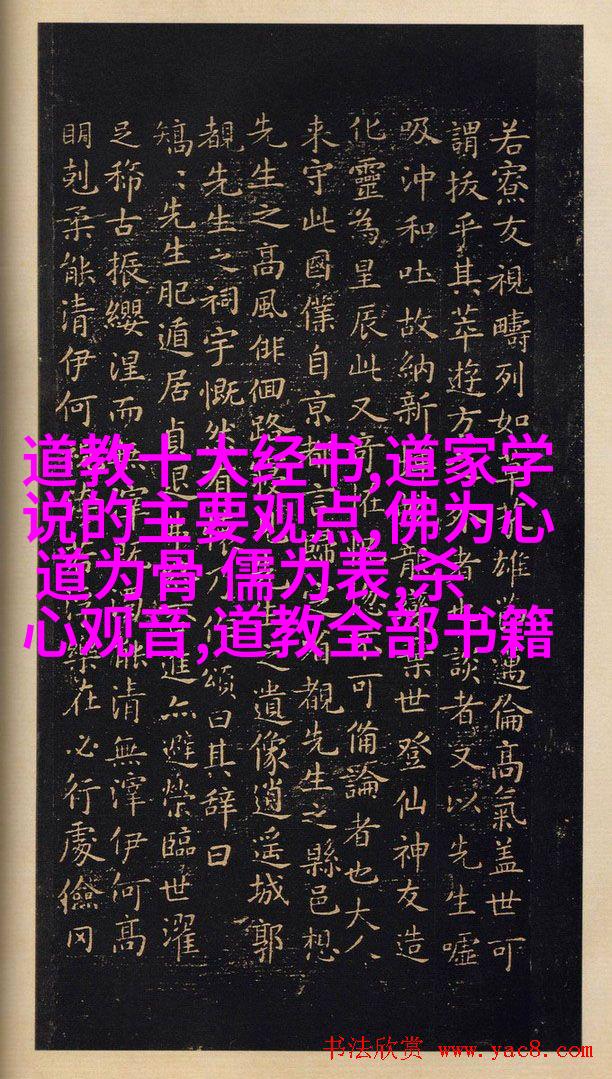 若寮友視疇列如 雄 邁倫高氣盖世可
謂拔乎其萃遊方 者也談者又以先生噓
吸沖和吐故納新 龍 棄世登仙神友造
化靈為星辰此又奇 可備論者也大人
来守此國僕自京都言 覩先生之縣邑想
先生之高風俳佪路 之遺像逍遥城郭
覩先生之祠宇慨然 頌曰其辞曰
矯〻先生肥遁居貞退 進亦避榮臨世濯
足稀古振纓涅而無滓 能清無滓伊何高
明剋柔能清伊何 在必行處儉冈
道教十大经书,道家学
说的主要观点,佛为心
道为骨 儒为表,杀
心观音,道教全部书籍
书法欣赏 www.yac8.com